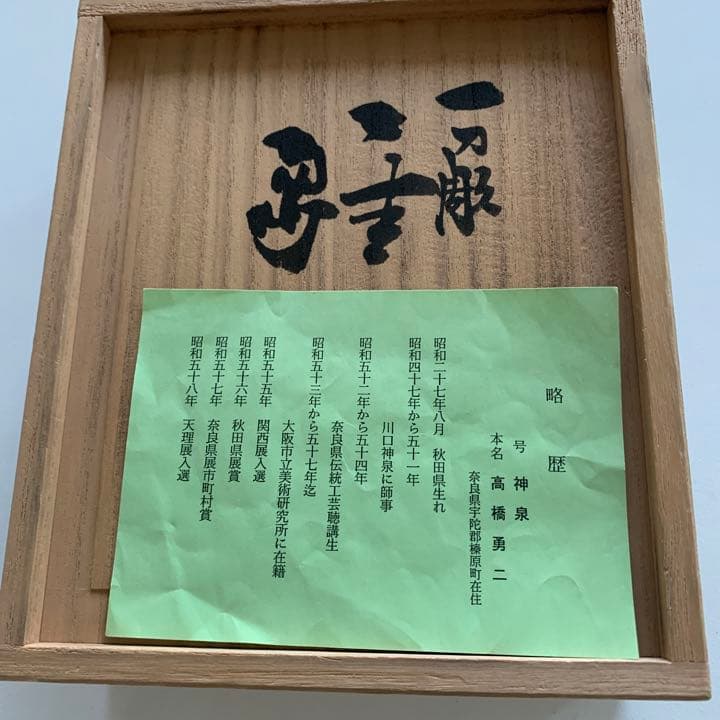 一刀彫
略歴
号 神泉
本名 高橋勇二
奈良県宇陀郡榛原町在住
昭和二十七年八月 秋田県生れ
昭和四十七年から五十一年
川口神泉に師事
昭和五十二年から五十四年
奈良県伝統工芸聴講生
昭和五十三年から五十七年迄
大阪市立美術研究所に在籍
昭和五十五年 関西展入選
昭和五十六年 秋田県展賞
昭和五十七年 奈良県展市町村賞
昭和五十八年 天理展入選